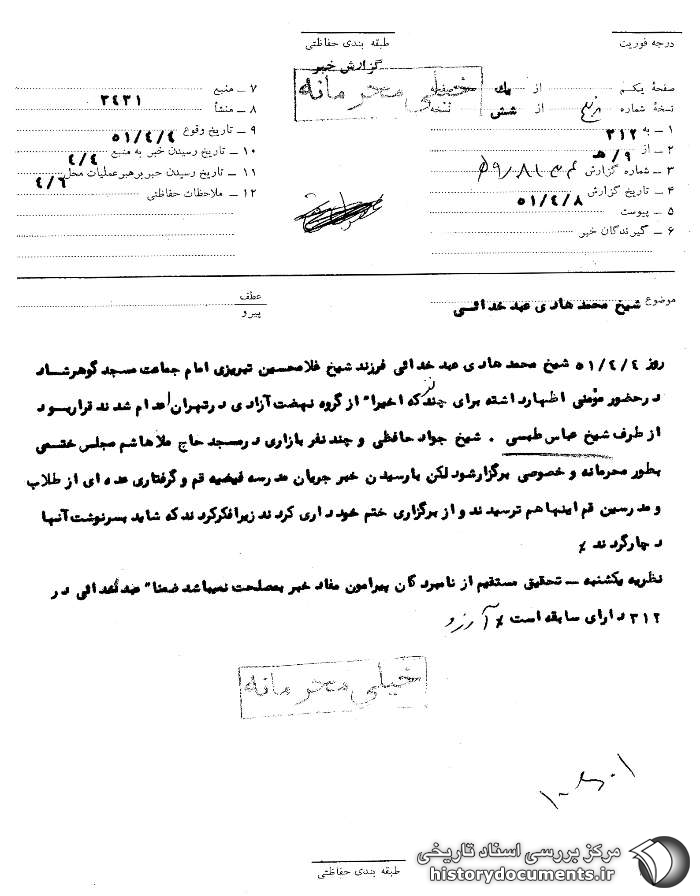 درجه فوریت
طبقه بندی حفاظتی
گزارش خبر
خیلی محرمانه
صفحهٔ یکم از یك صفحه
نسخهٔ شماره از شش نسخه
۱ – به ۳۱۲
۲ – از ۹/ﻫ
۳ – شماره گزارش
۴ – تاریخ گزارش ۵۱/۴/۸
۵ – پیوست
۶ – گیرندگان خبر
۷ – منبع
۸ – منشأ ۳۴۳۱
۹ – تاریخ وقوع ۵۱/۴/۴
۱۰ – تاریخ رسیدن خبر به منبع ۴/۴
۱۱ – تاریخ رسیدن خبر برهبر عملیات محل ۴/۶
۱۲ – ملاحظات حفاظتی
موضوع شیخ محمد هادی عبد خدائی
عطف
پیرو
روز ۵۱/۴/۴ شیخ محمد هادی عبد خدائی فرزند شیخ غلامحسین تبریزی امام جماعت مسجد گوهرشاد
در حضور مؤمنی اظهار داشته برای چند نفر که اخیرا" از گروه نهضت آزادی در تهران اعدام شدند قرار بود
از طرف شیخ عباس طبسی ، شیخ جواد حافظی و چند نفر بازاری در مسجد حاج ملا هاشم مجلس ختمی
بطور محرمانه و خصوصی برگزار شود لکن با رسیدن خبر جریان مدرسه فیضیه قم و گرفتاری عده ای از طلاب
و مدرسین قم اینها هم ترسیدند و از برگزاری ختم خودداری کردند زیرا فکر کردند که شاید بسرنوشت آنها
دچار گردند ٪
نظریه یکشنبه – تحقیق مستقیم از نامبردگان پیرامون مفاد خبر بمصلحت نمیباشد ضمنا" عبدخدائی در
۳۱۲ دارای سابقه است ٪ آرزو
خیلی محرمانه
طبقه بندی حفاظتی
مرکز بررسی اسناد تاریخی
historydocuments.ir